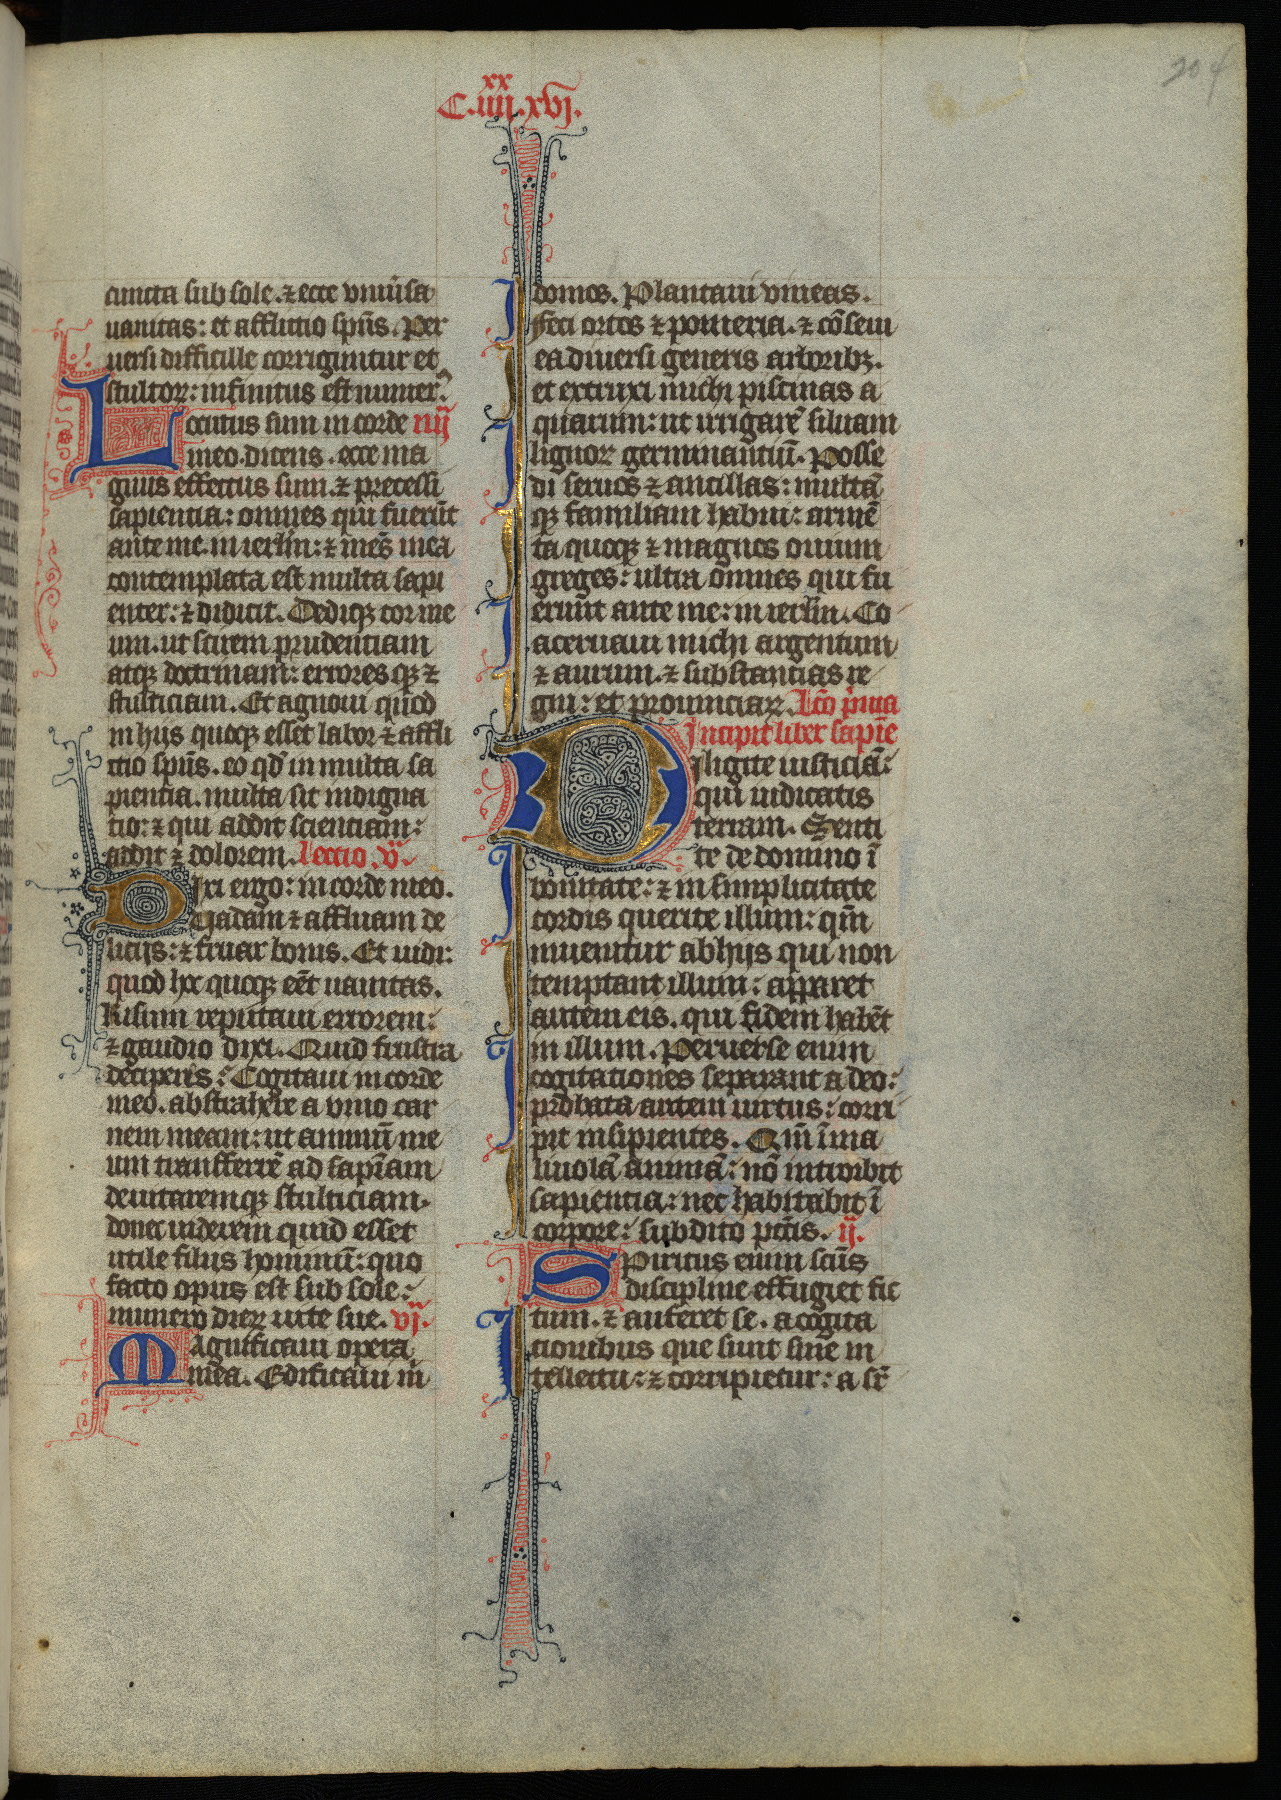 204
xx
C.iiii.xvj.
cuncta sub sole. ⁊ ecce vniu͛sa
uanitas: et afflictio sp̅us. Per
uersi difficille corriguntur et
stultoꝝ: infinitus est numer᷒
Locutus sum in corde iiij
meo. dicens. ecce ma
gnus effectus sum. ⁊ precessi
sapientia: omnes qui fuerūt
ante me. in ierl̅m: ⁊ mēs mea
contemplata est multa sapi
enter: ⁊ didicit. Dediqꝫ cor me
um. ut scirem prudentiam
atqꝫ doctrinam: errores qꝫ ⁊
stulticiam. Et agnoui quod
in hijs quoqꝫ esset labor ⁊ affli
ctio sp̅us. eo qd̕ in multa sa
pientia. multa sit indigna
tio: ⁊ qui addit scientiam:
addit ⁊ dolorem. Lectio .v.
Dixi ergo: in corde meo.
Uadam ⁊ affluam de
licijs: ⁊ fruar bonis. Et uidi:
quod hoc quoqꝫ eēt uanitas.
Risum reputaui errorem:
⁊ gaudio dixi. Quid frustra
deciperis: Cogitaui in corde
meo. abstrahere a vino car
nem meam: ut animū me
um transferrē ad sap̅iam
deuitaremqꝫ stulticiam.
donec uiderem quid esset
utile filijs hominū: quo
facto opus est sub sole:
numero dieꝝ uite sue. vj.
Magnificaui opera
mea. Edificaui m̅
domos. Plantaui vineas.
feci ortos ⁊ pomeria. ⁊ cōseui
ea diuersi generis arboribꝫ.
et extruxi michi piscinas a
quarum: ut irrigarē siluam
lignoꝝ germinantiū. Posse
di seruos ⁊ ancillas: multā
qꝫ familiam habui: armē
ta quoqꝫ ⁊ magnos ouium
greges: ultra omnes qui fu
erūnt ante me: in ierl̅m. Co
aceruaui michi argentum
⁊ aurum. ⁊ substancias re
gū: et prouinciaꝝ. Lc̅o p̕ma
Incipit liber sapīe
Diligite iusticiā:
qui iudicatis
terram. Senti
te de domino ī
bonitate: ⁊ in simplicitate
cordis querite illum: qm̅
inuenitur ab hijs qui non
temptant illum: apparet
autem eis. qui fidem habēt
in illum. Peruerse enim
cogitationes separant a deo:
probata autem uirtus: corri
pit insipientes. Qm̅ ī ma
liuolā animā: nō introibit
sapientia: nec habitabit ī
corpore: subdito pc̅cis. ij.
Spiritus enim sc̅us
discipline effugiet fic
tum. ⁊ auferet se. a cogita
tionibus que sunt sine in
tellectu: ⁊ corripietur: a sr̅